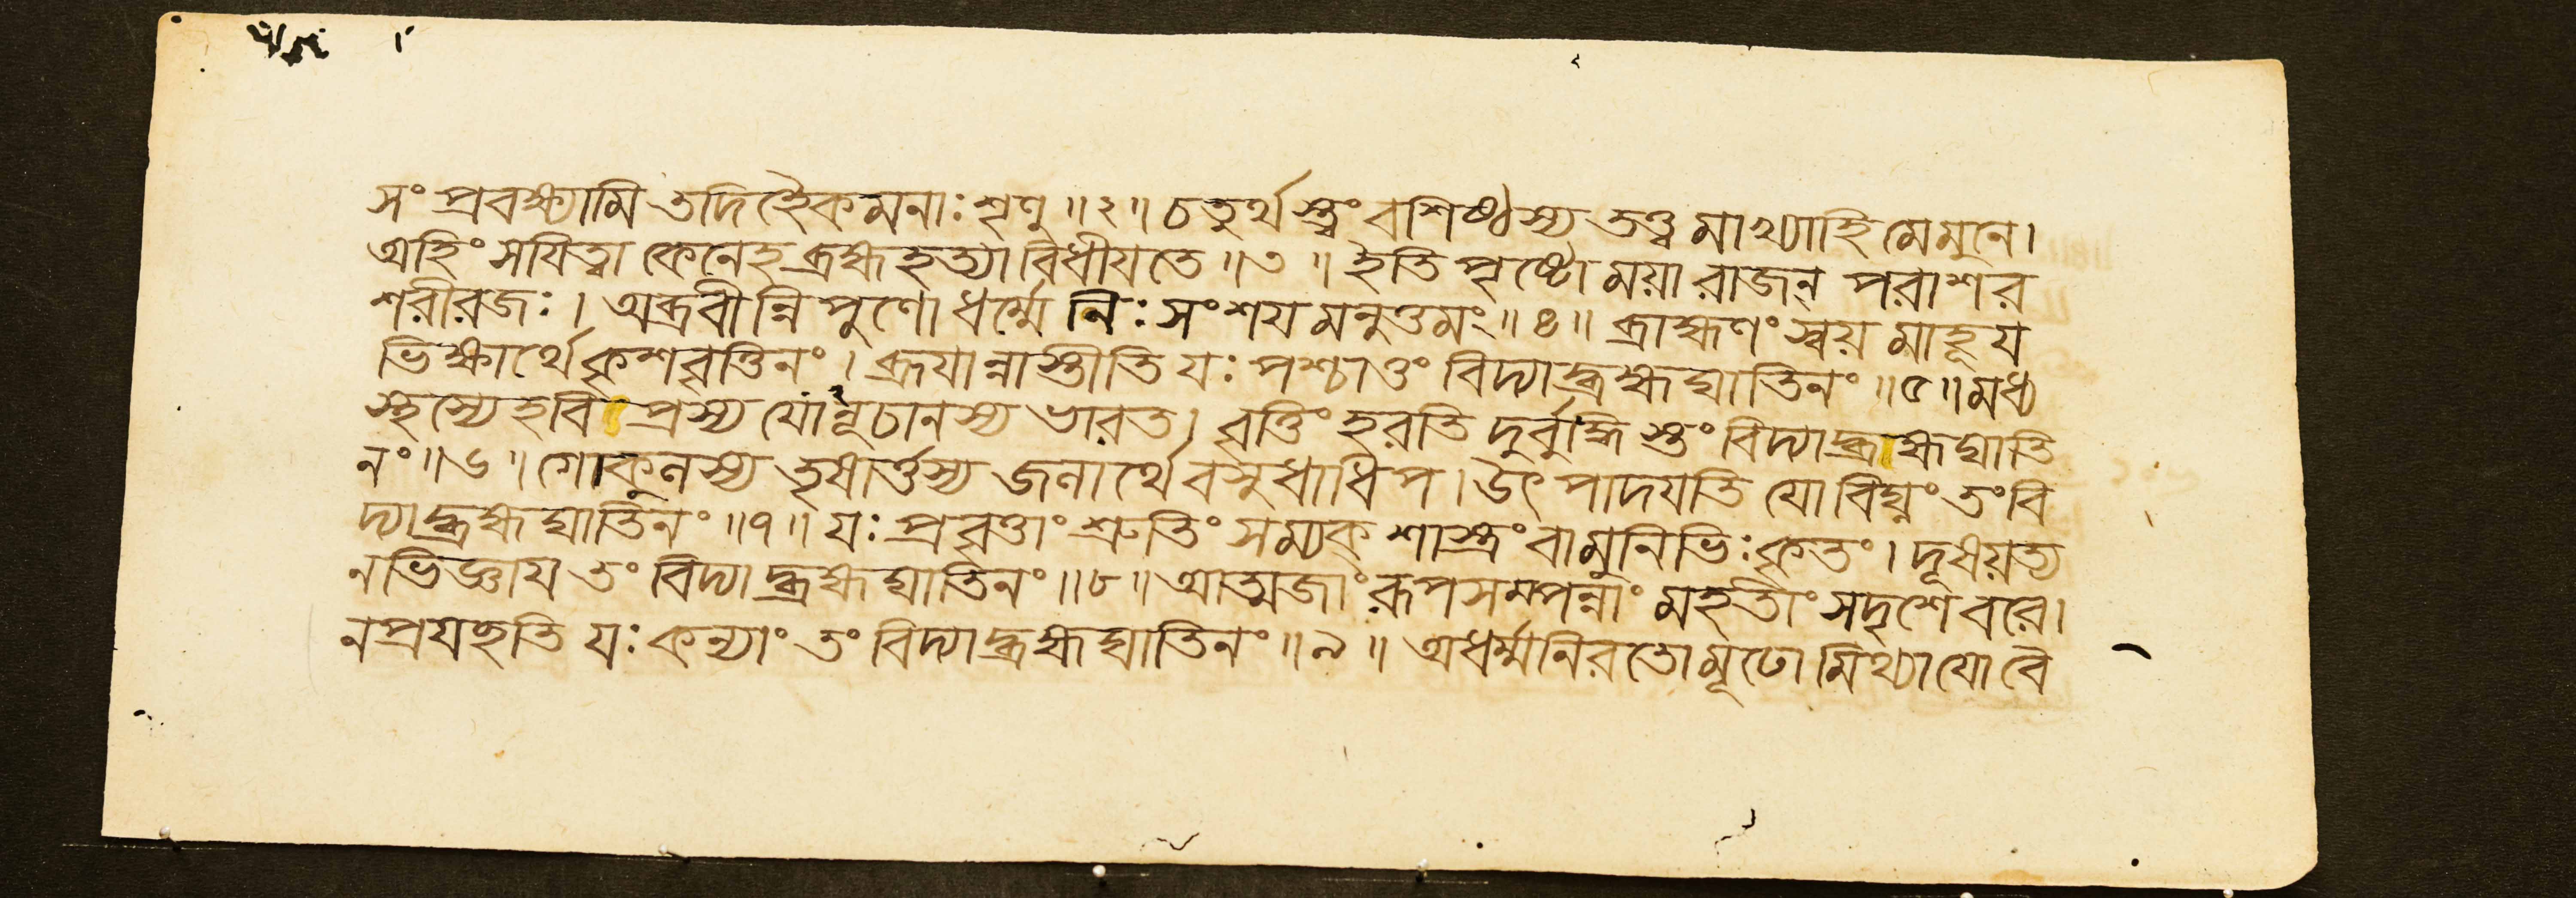 সং প্রবক্ষ্যামি তদিহৈকমনাঃ শৃণু ॥ ২ ॥ চতুর্থস্ত্বং বশিষ্ঠস্য তত্ত্বমাখ্যাহি মে মুনে ।
অহিংসযিত্বা কেনেহ ব্রহ্মহত্যা বিধীযতে ॥ ৩ ॥ ইতি পৃষ্টো ময়া রাজন্ পরাশর
শরীরজঃ । অব্রবীন্নিপুণো ধর্ম্মে নিঃসংশযমনুত্তমং ॥ ৪ ॥ ব্রাহ্মণং স্বয়মাহূয
ভিক্ষার্থে কৃশবৃত্তিনং । ব্রূযান্নাস্তীতি যঃ পশ্চাত্তং বিদ্যাদ্ব্রহ্মঘাতিনং ॥ ৫ ॥ মধ্য
স্থস্যেহ বিপ্রস্য যোনূচানস্য ভারত । বৃত্তিং হরতি দুর্বুদ্ধিস্তং বিদ্যাদ্ব্রহ্মঘাতি
নং ॥ ৬ ॥ গোকুলস্য তৃষার্ত্তস্য জলার্থে বসুধাধিপ । উৎপাদযতি যো বিঘ্নং তং বি
দ্যাদ্ব্রহ্মঘাতিনং ॥ ৭ ॥ যঃ প্রবৃত্তাং শ্রুতিং সম্যক্ শাস্ত্রং বা মুনিভিঃ কৃতং । দূষয়ত্য
নভিজ্ঞায তং বিদ্যাদ্ব্রহ্মঘাতিনং ॥ ৮ ॥ আত্মজাং রূপসম্পন্নাং মহতীং সদৃশে বরে ।
ন প্রযচ্ছতি যঃ কন্যাং তং বিদ্যাদ্ব্রহ্মঘাতিনং ॥ ৯ ॥ অধর্ম্মনিরতো মূঢো মিথ্যা যো বৈ